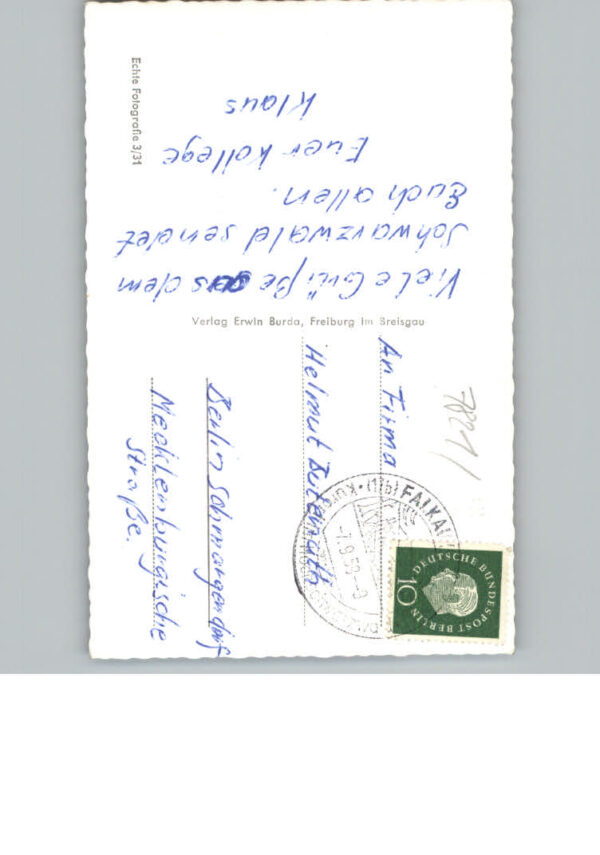 Viele Grüße aus dem
Schwarzwald sendet
Euch allen.
Euer Kollege
Klaus
Echte Fotografie 3/31
Verlag Erwin Burda, Freiburg im Breisgau
An Firma
Helmut
Berlin Schmargendorf
Mecklenburgische
Straße.
7821/
(17b) FALKAU
-7.9.59-
DEUTSCHE BUNDESPOST BERLIN
10